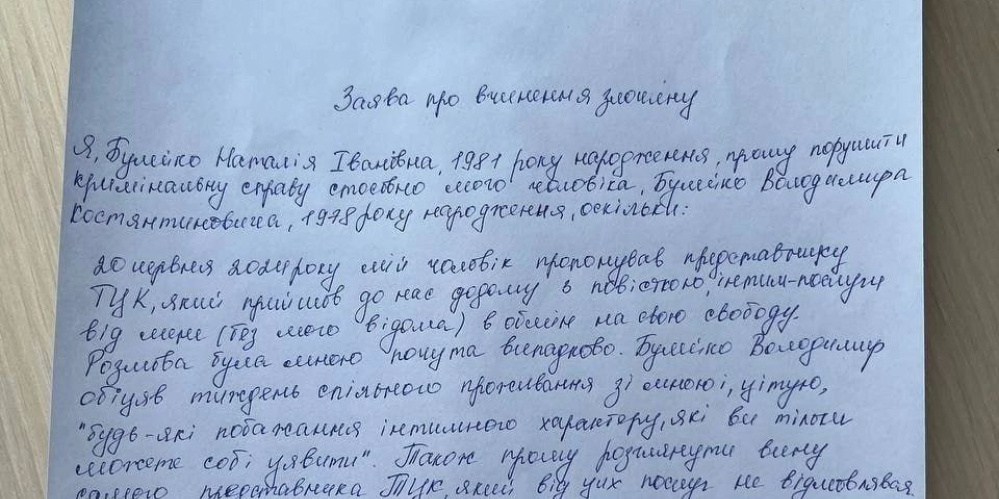 Заява про вчинення злочину
Я, Бумейко Наталія Іванівна, 1981 року народження, прошу порушити
кримінальну справу стосовно мого чоловіка, Бумейко Володимира
Костянтиновича, 1978 року народження, оскільки:
20 червня 2024 року мій чоловік пропонував представнику
ТЦК, який прийшов до нас додому з повісткою, інтим-послуги
від мене (без мого відома) в обмін на свою свободу.
Розмова була мною почута випадково. Бумейко Володимир
обіцяв тиждень спільного проживання зі мною і, цітую,
"будь-які побажання інтимного характору, які ви тільки
можете собі уявити". Також прошу розглянути вину
самого представника ТЦК, який від цих послуг не відмовлявся